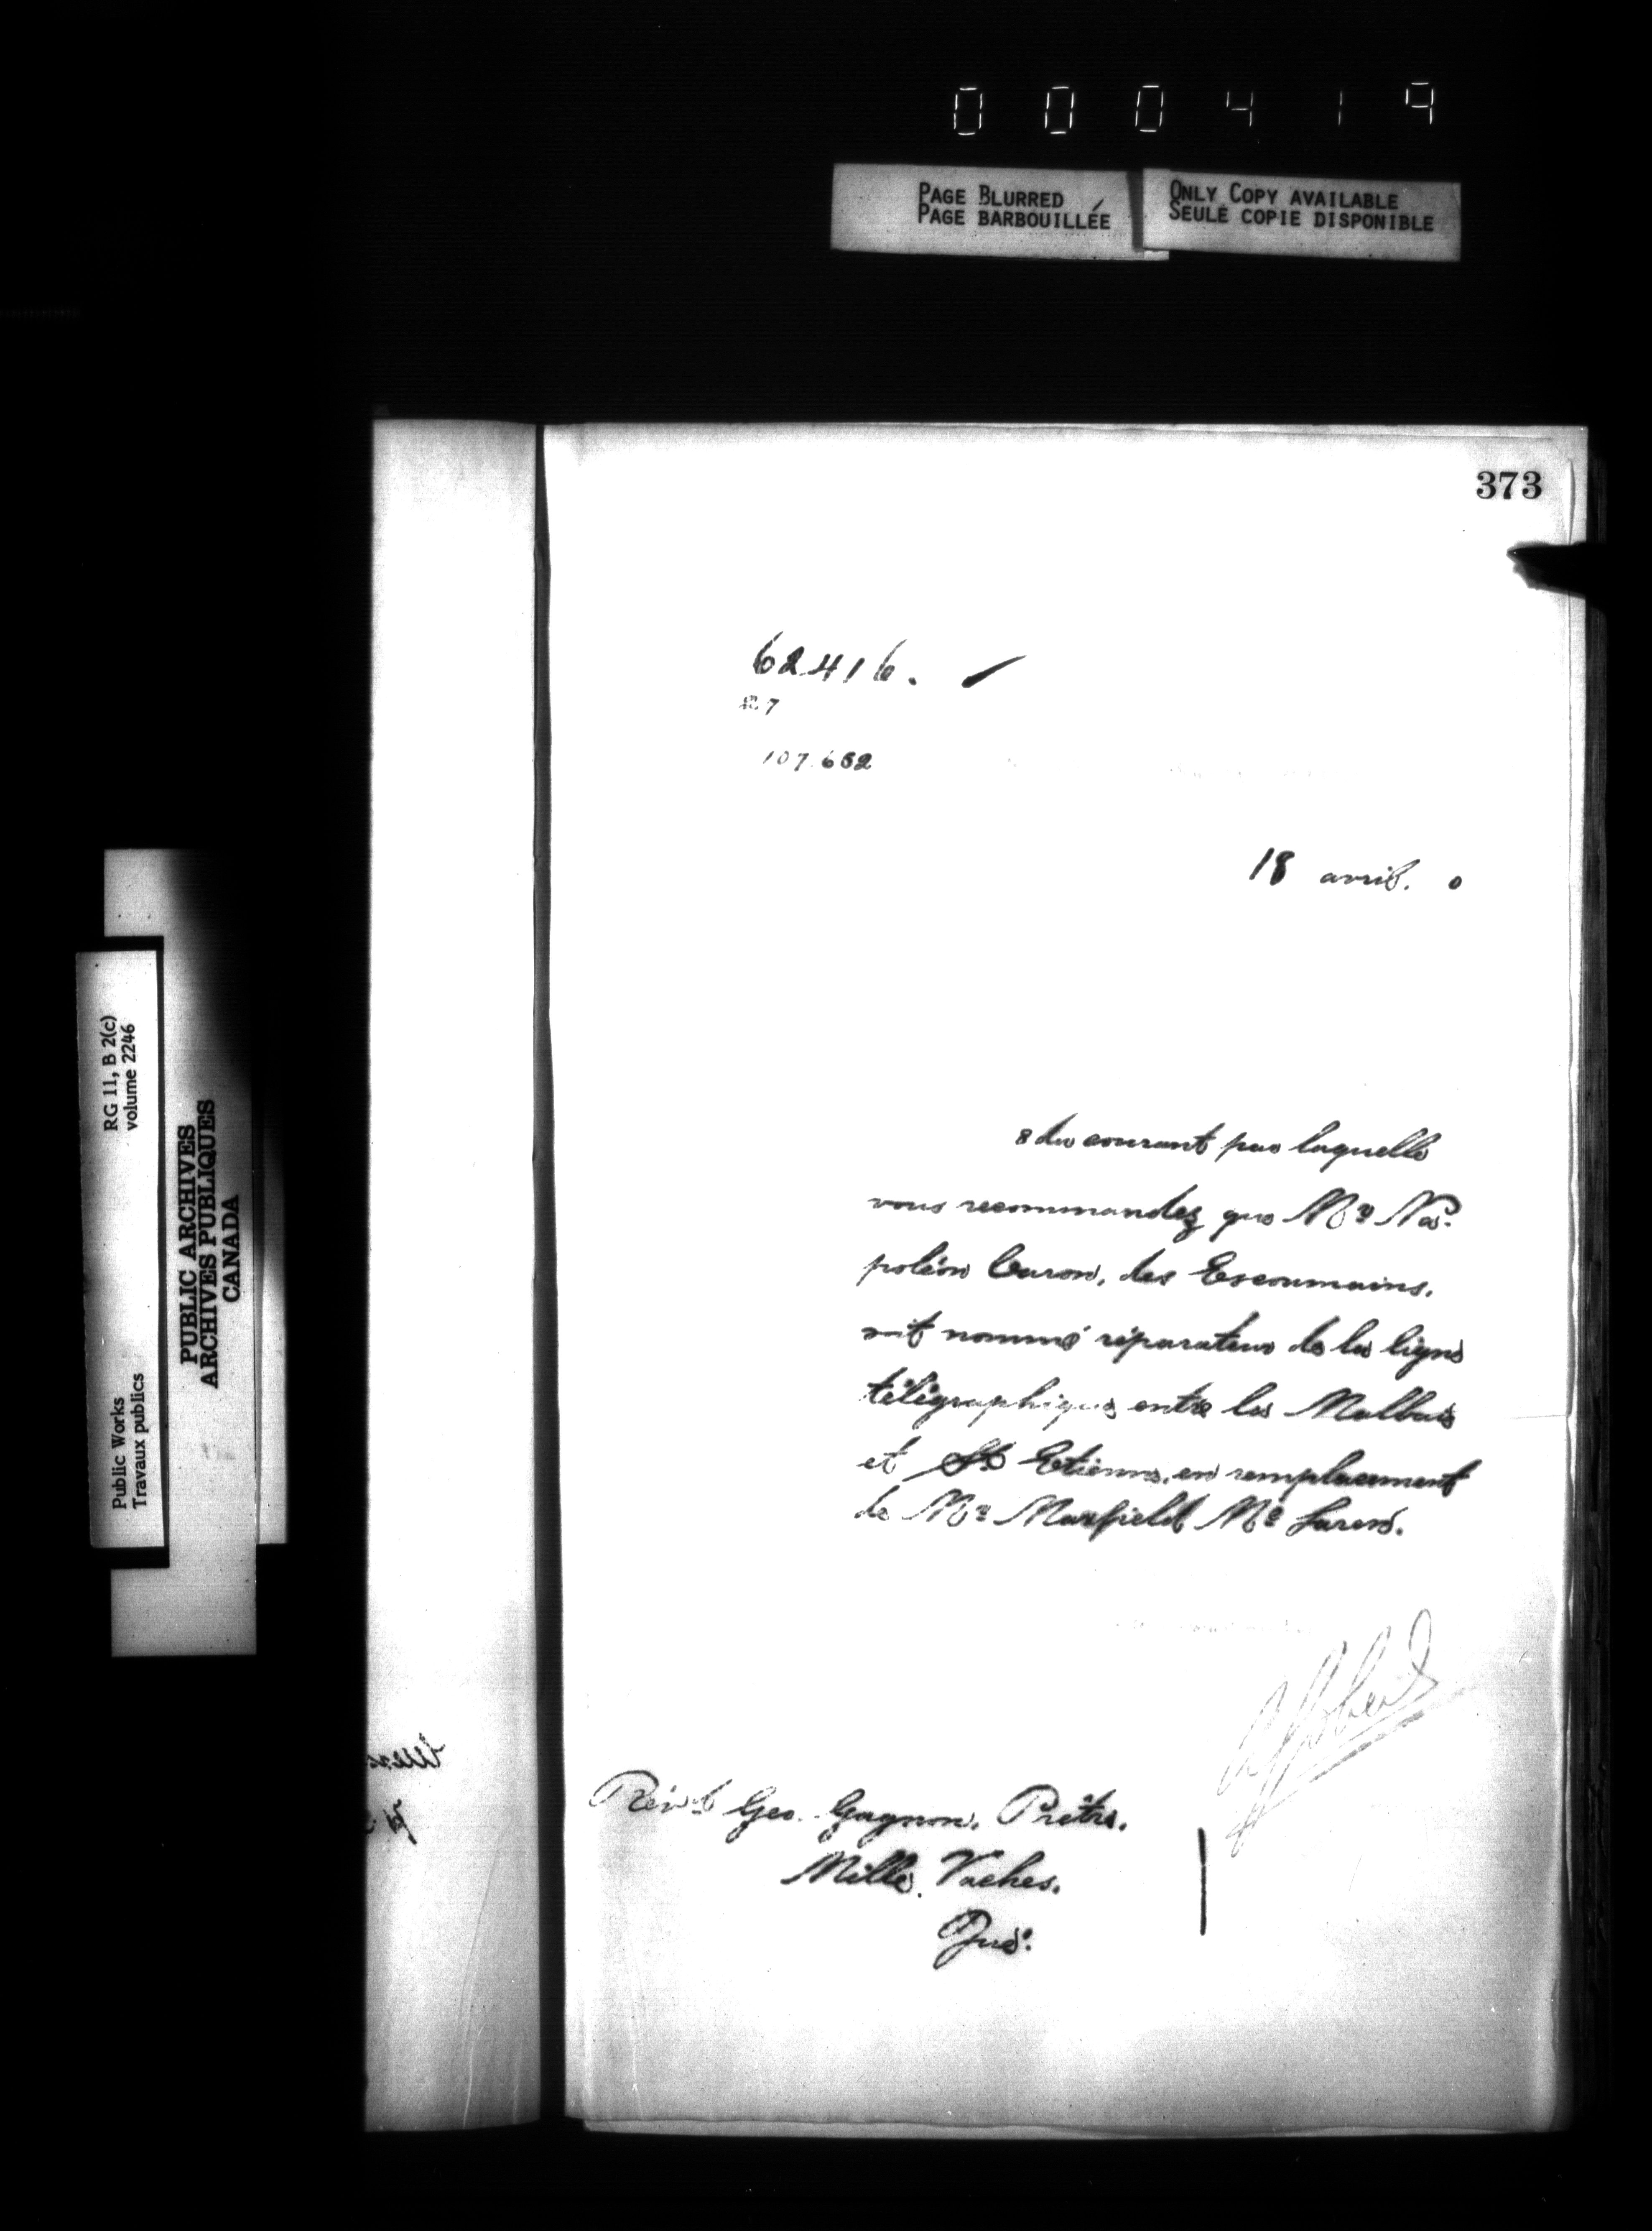 000419
PAGE BLURRED
PAGE BARBOUILLÉE
ONLY COPY AVAILABLE
SEULE COPIE DISPONIBLE
RG 11, B 2(c)
volume 2246
Public Works
Travaux publics
PUBLIC ARCHIVES
ARCHIVES PUBLIQUES
CANADA
373
62416.
107.652
18 avril. 0
8 du courant par laquelle
vous recommandez que Mr Na-
poléon Caron, des Escoumains,
soit nommé réparateur de la ligne
télégraphique entre la Malbaie
et St Etienne, en remplacement
de Mr Maxfield Mc Laren.
Révd Geo. Gagnon, Prêtre,
Mille Vaches,
Qué.